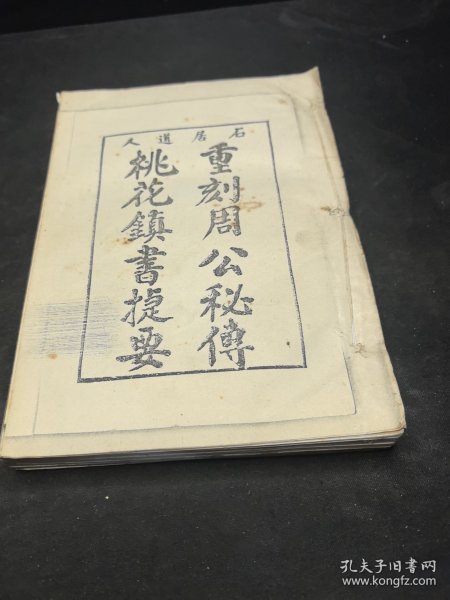 石居道人
重刻周公秘傳
桃花鎮書捷要
孔夫子旧书网
www.kongfz.com